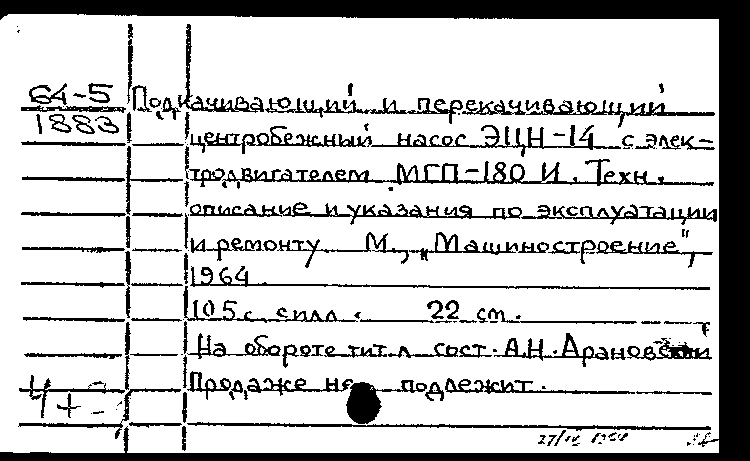 64-5 Подкачивающий и перекачивающий
1883
центробежный насос ЭЦН-14 с элек-
тродвигателем МГП-180 И. Техн.
описание и указания по эксплуатации
и ремонту М., „Машиностроение",
1964.
105 с. с илл. 22 см.
На обороте тит. л сост. А.Н. Арановский
Продаже не подлежит.